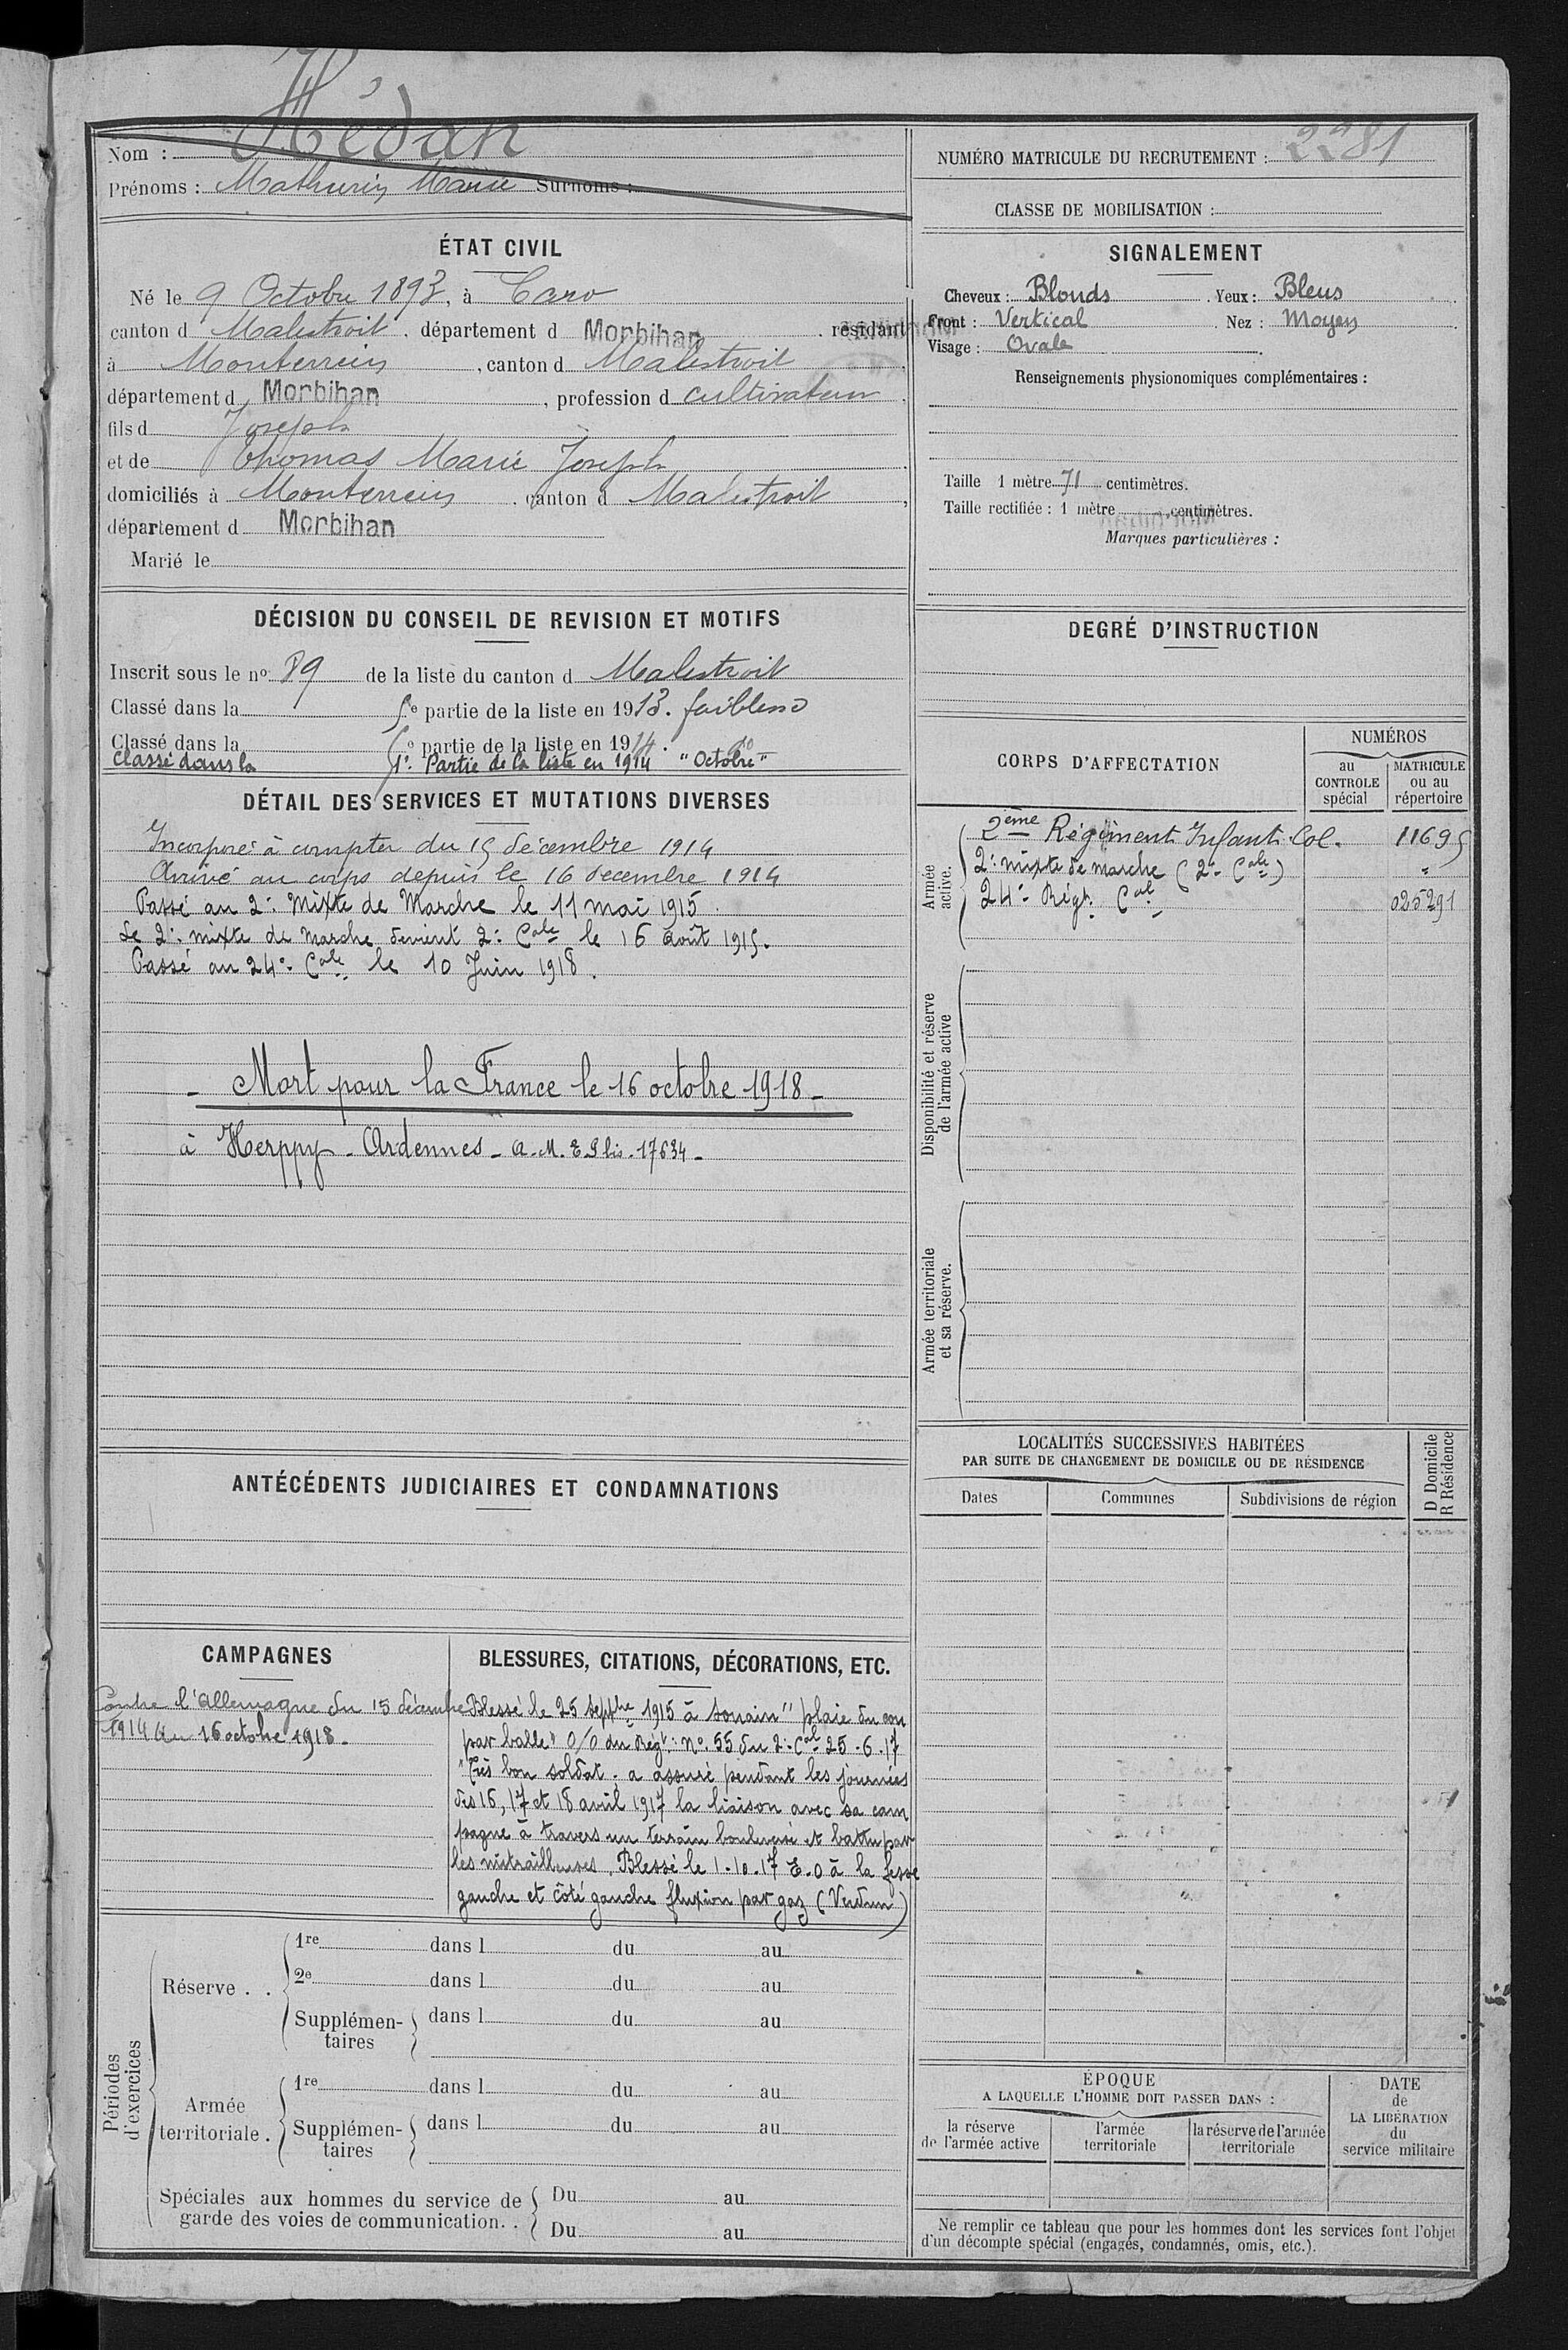 Nom : Hédan
Prénoms : Mathurin Marie Surnoms :
NUMÉRO MATRICULE DU RECRUTEMENT : 2281
CLASSE DE MOBILISATION :
ÉTAT CIVIL
Né le 9 Octobre 1893, à Caro
canton d Malestroit, département d Morbihan, résidant
à Monterrein, canton d Malestroit
département d Morbihan, profession d cultivateur
fils d Joseph
et de Thomas Marie Joseph
domiciliés à Monterrein, canton d Malestroit,
département d Morbihan
Marié le
SIGNALEMENT
Cheveux : Blonds. Yeux : Bleus
Front : Vertical. Nez : Moyen
Visage : Ovale
Renseignements physionomiques complémentaires :
Taille 1 mètre 71 centimètres.
Taille rectifiée : 1 mètre centimètres.
Marques particulières :
DÉCISION DU CONSEIL DE REVISION ET MOTIFS
Inscrit sous le no 89 de la liste du canton d Malestroit
Classé dans la 5e partie de la liste en 1913. faiblesse
Classé dans la 5e partie de la liste en 1914. do
Classé dans la 1e. Partie de la liste en 1914 "Octobre"
DEGRÉ D'INSTRUCTION
DÉTAIL DES SERVICES ET MUTATIONS DIVERSES
Incorporé à compter du 15 décembre 1914
Arrivé au corps depuis le 16 décembre 1914
Passé au 2e. Mixte de Marche le 11 mai 1915
Le 2e. mixte de marche devient 2e. Cale le 16 août 1915.
Passé au 24e. Cale le 10 Juin 1918.
- Mort pour la France le 16 octobre 1918 -
à Herppy - Ardennes - A.M. E 9 bis - 17634 -
CORPS D'AFFECTATION
NUMÉROS
au CONTROLE spécial
MATRICULE ou au répertoire
Armée active.
2ème Régiment Infant. Col. 11695
2e. mixte de marche (2e Cale) "
24e Régt. Cal 025291
Disponibilité et réserve de l'armée active
Armée territoriale et sa réserve.
LOCALITÉS SUCCESSIVES HABITÉES
PAR SUITE DE CHANGEMENT DE DOMICILE OU DE RÉSIDENCE
Dates
Communes
Subdivisions de région
D Domicile
R Résidence
ANTÉCÉDENTS JUDICIAIRES ET CONDAMNATIONS
CAMPAGNES
Contre l'Allemagne du 15 décembre
1914 au 16 octobre 1918.
BLESSURES, CITATIONS, DÉCORATIONS, ETC.
Blessé le 25 septbre 1915 à Souain "plaie du cou
par balle" O/O du Régt. No. 55 du 2e. Cal 25.6.17
"Très bon soldat. a assuré pendant les journées
des 16, 17 et 18 avril 1917 la liaison avec sa com
pagne à travers un terrain bouleversé et battu par
les mitrailleuses. Blessé le 1.10.17 E.O à la fesse
gauche et côté gauche fluxion par gaz (Verdun)
Périodes d'exercices
Réserve . .
1re dans l du au
2e dans l du au
Supplémentaires dans l du au
Armée territoriale .
1re dans l du au
Supplémentaires dans l du au
Spéciales aux hommes du service de
garde des voies de communication. .
Du au
Du au
ÉPOQUE
A LAQUELLE L'HOMME DOIT PASSER DANS :
la réserve de l'armée active
l'armée territoriale
la réserve de l'armée territoriale
DATE de LA LIBÉRATION du service militaire
Ne remplir ce tableau que pour les hommes dont les services font l'objet
d'un décompte spécial (engagés, condamnés, omis, etc.).